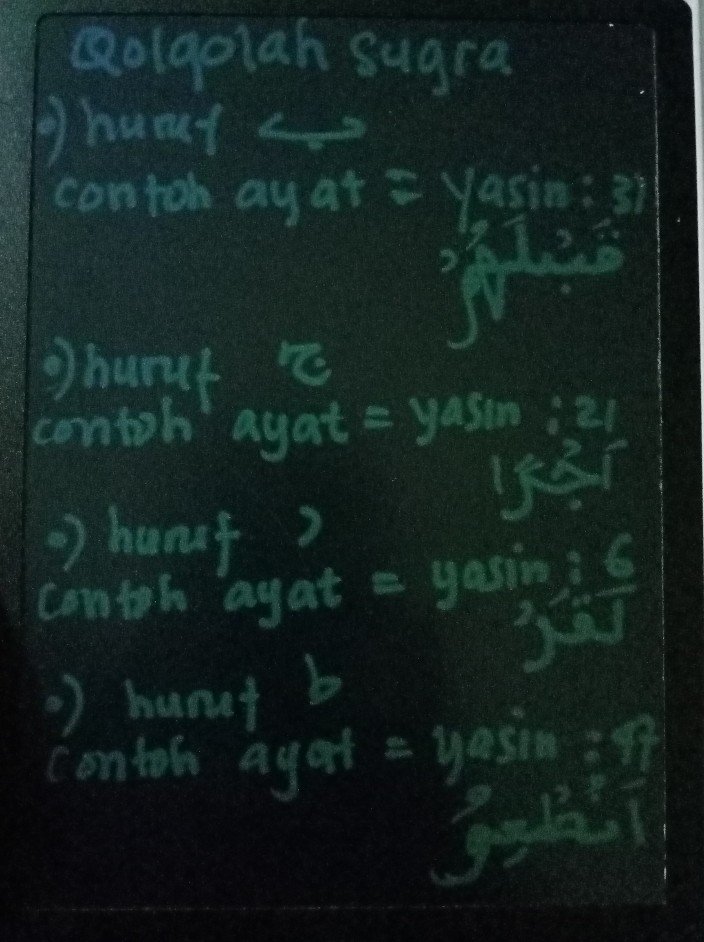 Qolqolah sugra
•) huruf ب
contoh ayat = yasin : 31
قَبْلَهُمْ
•) huruf ج
contoh ayat = yasin : 21
اَجْرًا
•) huruf د
contoh ayat = yasin : 6
لَقَدْ
•) huruf ط
contoh ayat = yasin : 47